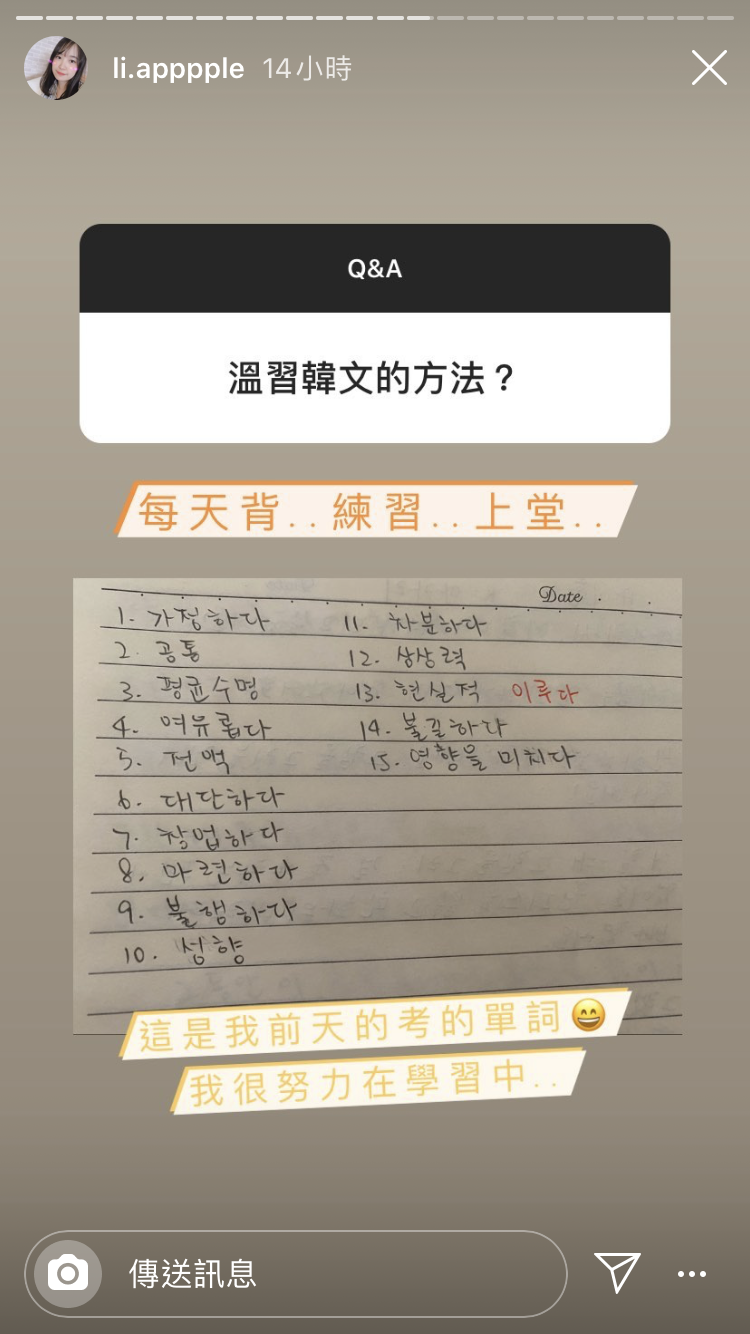 li.apppple 14小時
Q&A
溫習韓文的方法？
每天背..練習..上堂..
Date
1. 가정하다
2. 공통
3. 평균수명
4. 여유롭다
5. 전액
6. 대단하다
7. 창업하다
8. 마련하다
9. 불행하다
10. 성향
11. 차분하다
12. 상상력
13. 현실적 이루다
14. 불길하다
15. 영향을 미치다
這是我前天的考的單詞😄
我很努力在學習中..
傳送訊息